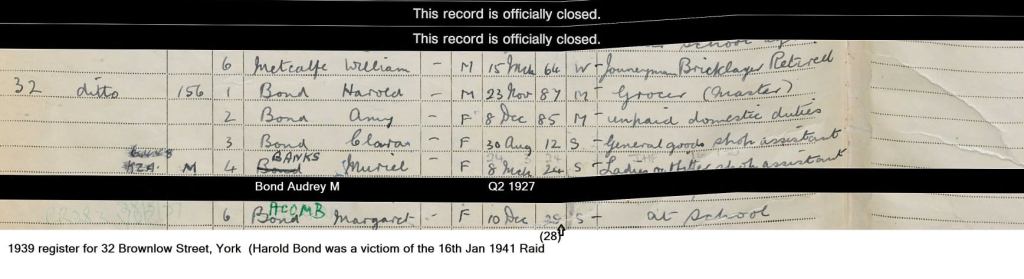 This record is officially closed.
This record is officially closed.
6 Metcalfe William - M 15 Mch 64 W - Journeyman Bricklayer Retired
32 ditto 156 1 Bond Harold - M 23 Nov 87 M - Grocer (Master)
2 Bond Amy - F 8 Dec 85 M - unpaid domestic duties
3 Bond Clara - F 30 Aug 12 S - General goods shop assistant
BANKS
M 4 Bond Muriel - F 8 Mch 24 S - Ladies shop assistant
Bond Audrey M Q2 1927
ACOMB
6 Bond Margaret - F 10 Dec S - at school
(28)
1939 register for 32 Brownlow Street, York (Harold Bond was a victiom of the 16th Jan 1941 Raid